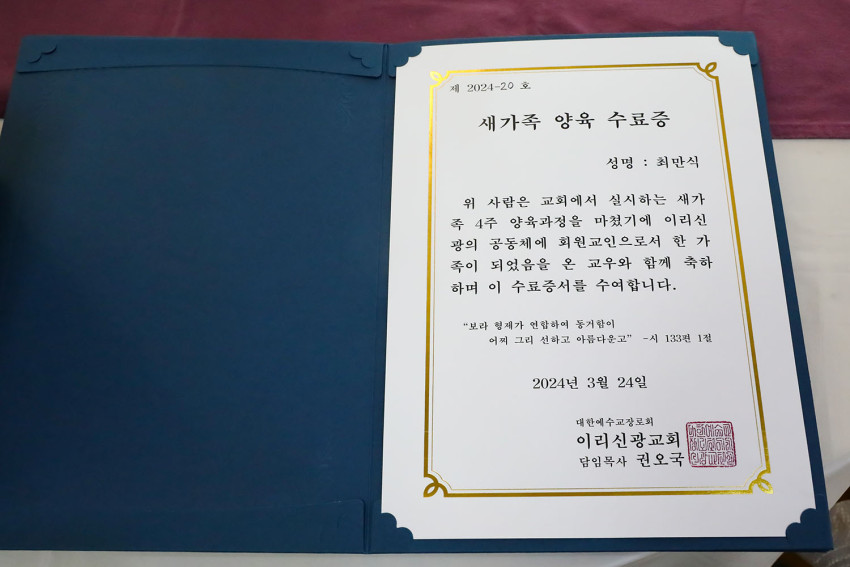 제 2024-20 호
새가족 양육 수료증
성명 : 최만식
위 사람은 교회에서 실시하는 새가
족 4주 양육과정을 마쳤기에 이리신
광의 공동체에 회원교인으로서 한 가
족이 되었음을 온 교우와 함께 축하
하며 이 수료증서를 수여합니다.
"보라 형제가 연합하여 동거함이
어찌 그리 선하고 아름다운고" -시 133편 1절
2024년 3월 24일
대한예수교장로회
이리신광교회
담임목사 권오국